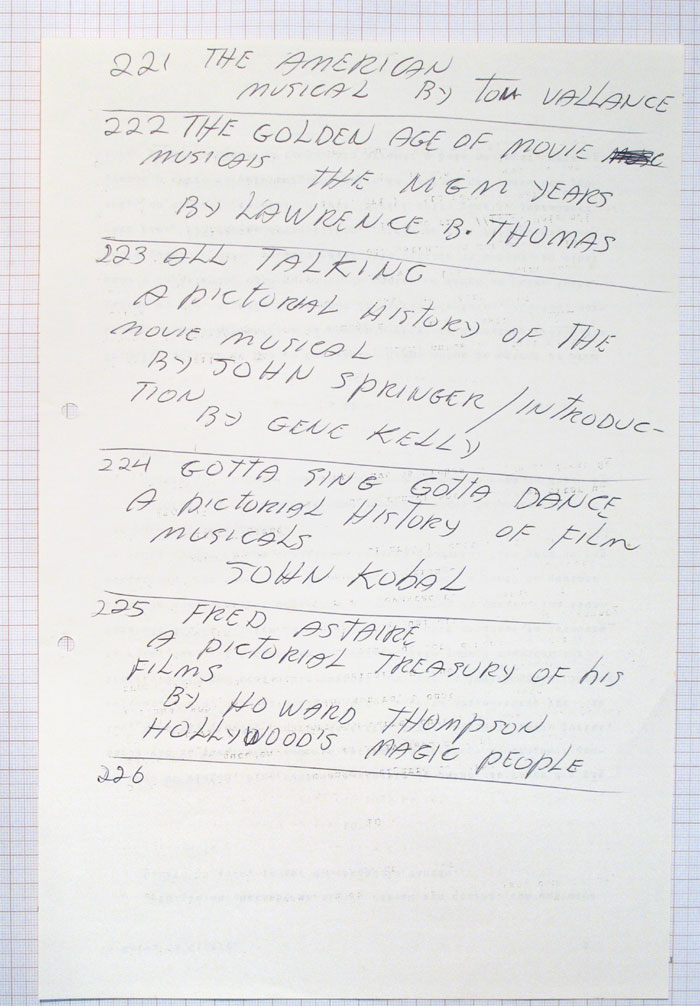 221 THE AMERICAN
MUSICAL BY TOM VALLANCE
222 THE GOLDEN AGE OF MOVIE
MUSICALS THE MGM YEARS
BY LAWRENCE B. THOMAS
223 ALL TALKING
A PICTORIAL HISTORY OF THE
MOVIE MUSICAL
BY JOHN SPRINGER/INTRODUC-
TION
BY GENE KELLY
224 GOTTA SING GOTTA DANCE
A PICTORIAL HISTORY OF FILM
MUSICALS
JOHN KOBAL
225 FRED ASTAIRE
A PICTORIAL TREASURY OF HIS
FILMS
BY HOWARD THOMPSON
HOLLYWOOD'S MAGIC PEOPLE
226